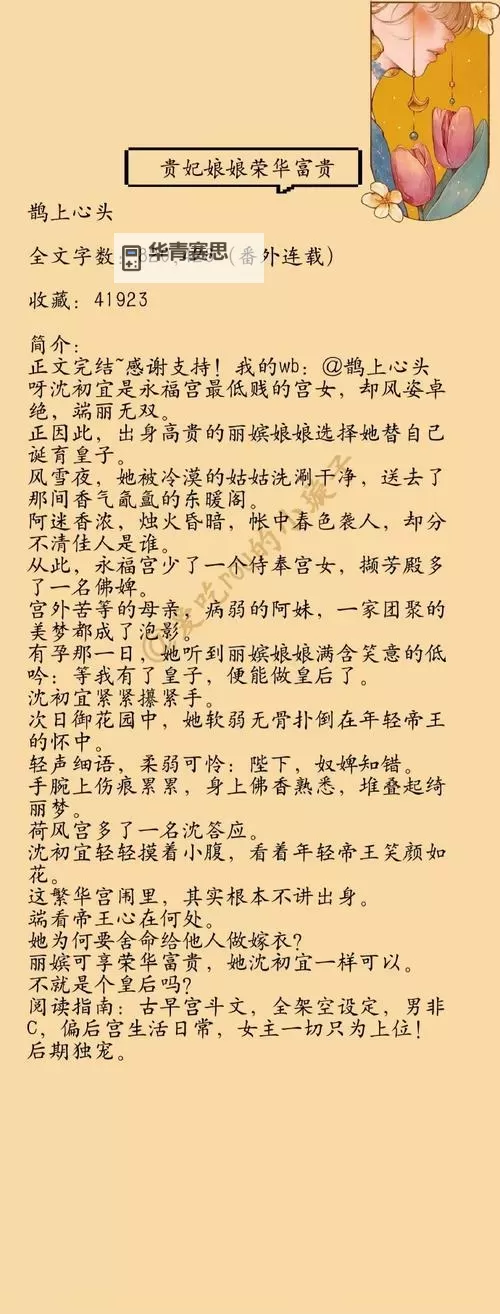 贵妃娘娘荣华富贵
鹊上心头
全文字数： （番外连载）
华青赛思
收藏：41923
简介：
正文完结~感谢支持！我的wb：@鹊上心头
呀沈初宜是永福宫最低贱的宫女，却风姿卓
绝，端丽无双。
正因此，出身高贵的丽嫔娘娘选择她替自己
诞育皇子。
风雪夜，她被冷漠的姑姑洗涮干净，送去了
那间香气氤氲的东暖阁。
阿迷香浓，烛火昏暗，帐中春色袭人，却分
不清佳人是谁。
从此，永福宫少了一个侍奉宫女，撷芳殿多
了一名佛婢。
宫外苦等的母亲，病弱的阿妹，一家团聚的
美梦都成了泡影。
有孕那一日，她听到丽嫔娘娘满含笑意的低
吟：等我有了皇子，便能做皇后了。
沈初宜紧紧攥紧手。
次日御花园中，她软弱无骨扑倒在年轻帝王
的怀中。
轻声细语，柔弱可怜：陛下，奴婢知错。
手腕上伤痕累累，身上佛香熟悉，堆叠起绮
丽梦。
荷风宫多了一名沈答应。
沈初宜轻轻摸着小腹，看着年轻帝王笑颜如
花。
这繁华宫闱里，其实根本不讲出身。
端看帝王心在何处。
她为何要舍命给他人做嫁衣？
丽嫔可享荣华富贵，她沈初宜一样可以。
不就是个皇后吗？
阅读指南：古早宫斗文，全架空设定，男非
C，偏后宫生活日常，女主一切只为上位！
后期独宠。